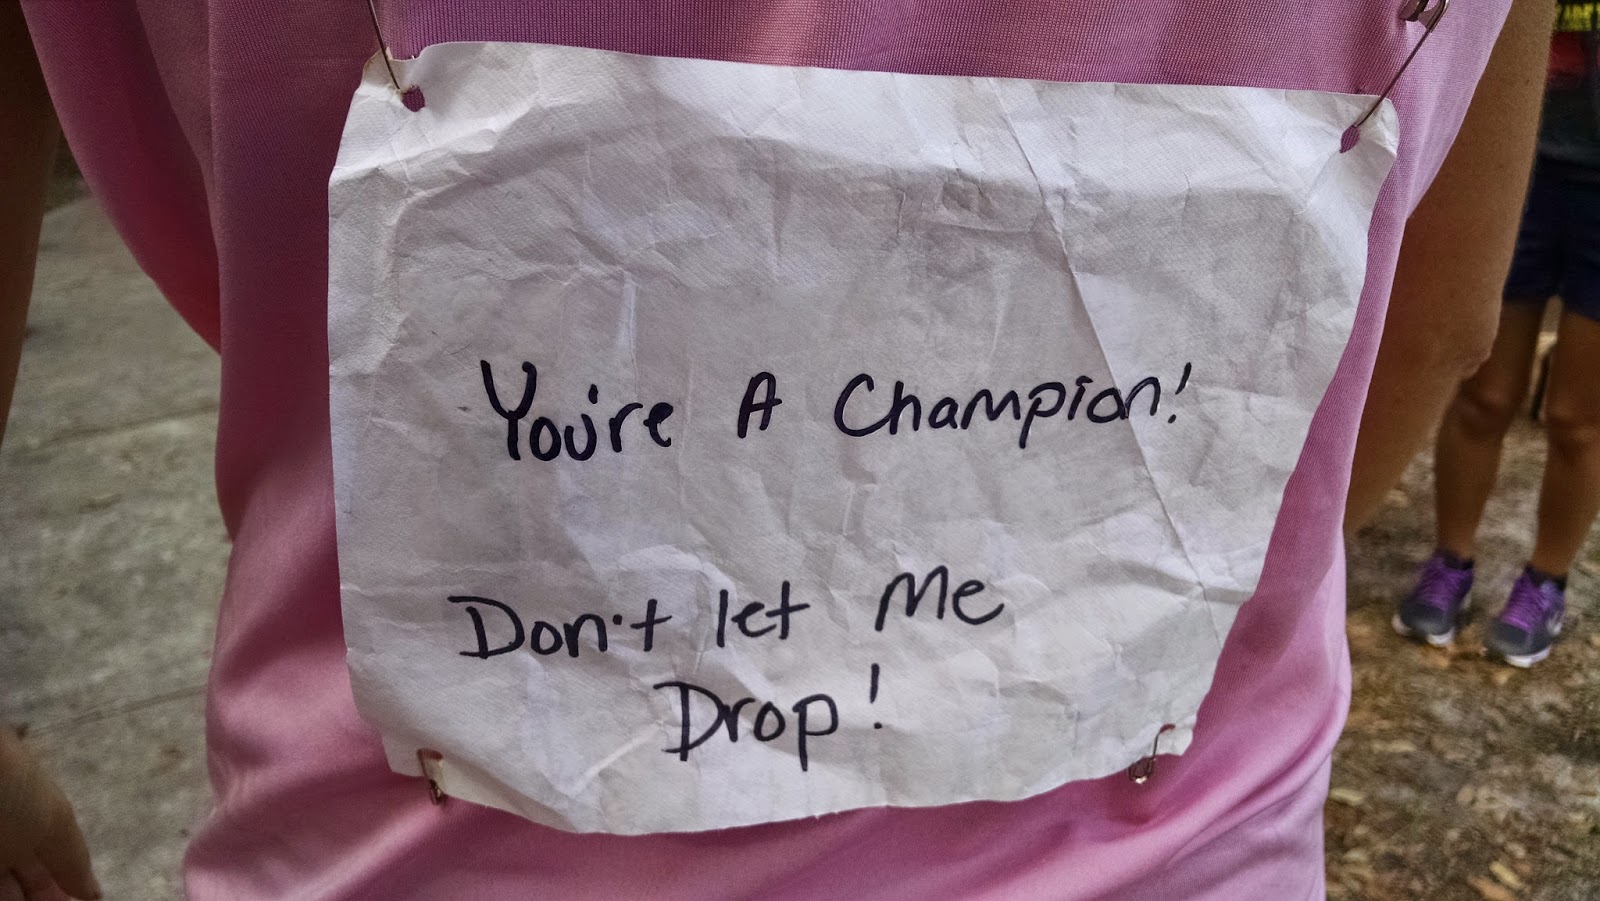 You're A Champion!
Don't let Me
Drop!